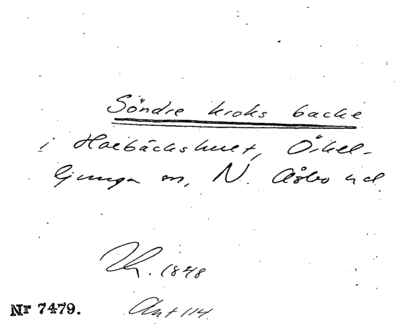 Söndre kroks backe
i Holbäckshult, Örkel-
ljunga sn, N. Åsbo hd.
Th. 1848
Nr 7479.
Ant 114